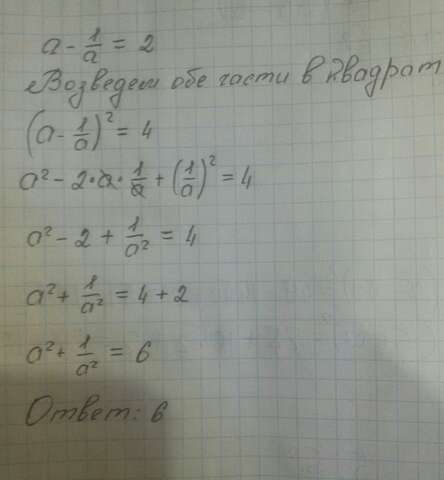 a - 1/a = 2
Возведем обе части в квадрат
(a - 1/a)² = 4
a² - 2·a·1/a + (1/a)² = 4
a² - 2 + 1/a² = 4
a² + 1/a² = 4 + 2
a² + 1/a² = 6
Ответ: 6